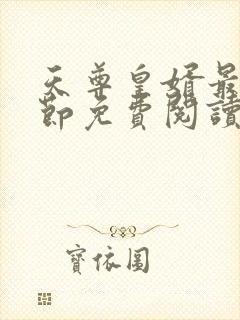 天尊皇婿最
節免費閱讀
寶依圖